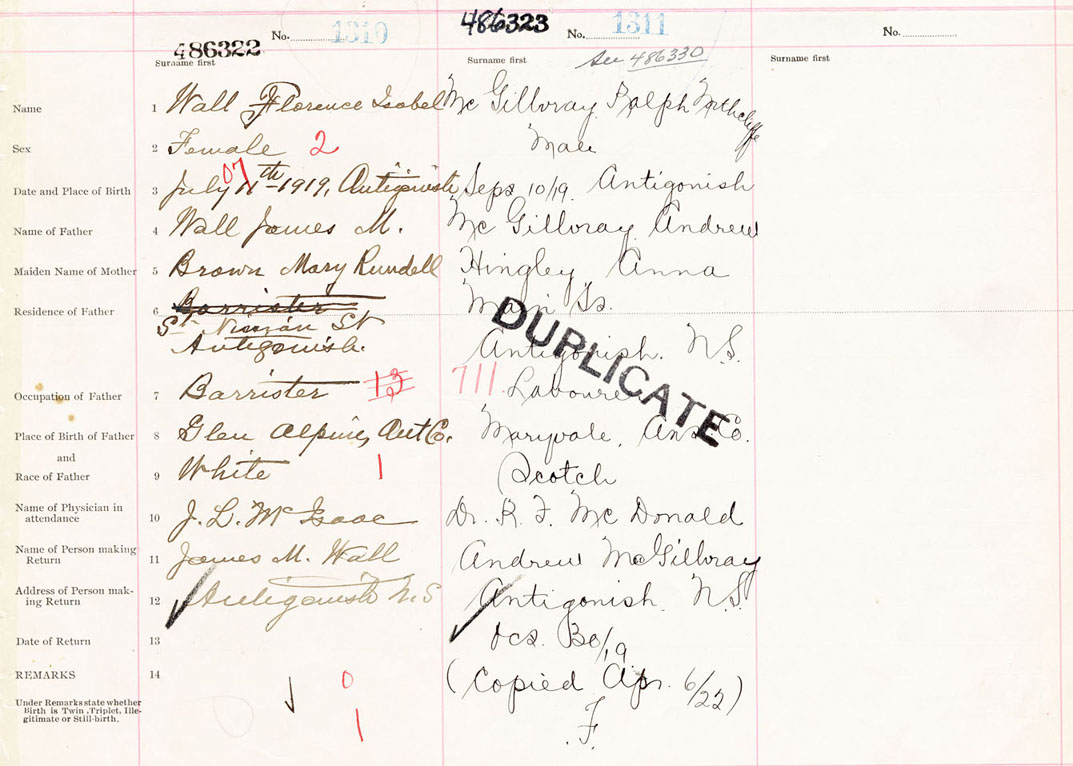 No. 1310
486322
Surname first
486323
No. 1311
Surname first
See 486330
No.
Surname first
Name 1 Wall Florence Isabel Mc Gillvray Ralph
Sex 2 Female 2 Male
Date and Place of Birth 3 July 11th-1919, Antigonish 07 Sept 10/19. Antigonish
Name of Father 4 Wall James M. Mc Gillvray Andrew
Maiden Name of Mother 5 Brown Mary Rundell Hingley Anna
Residence of Father 6 Barrister Main St.
St. Ninian St
Antigonish. Antigonish. N.S.
DUPLICATE
Occupation of Father 7 Barrister 13 711 Labourer
Place of Birth of Father 8 Glen Alpine, Ant Co. Maryvale, Ant Co.
and
Race of Father 9 White 1 Scotch
Name of Physician in
attendance 10 J. L. McIsaac Dr. R. F. Mc Donald
Name of Person making
Return 11 James M. Wall Andrew McGillvray
Address of Person mak-
ing Return 12 Antigonish N.S Antigonish. N.S.
Date of Return 13 Oct. 30/19
REMARKS 14 0 (Copied Apr. 6/22)
Under Remarks state whether
Birth is Twin, Triplet, Ille-
gitimate or Still-birth.
1 F.